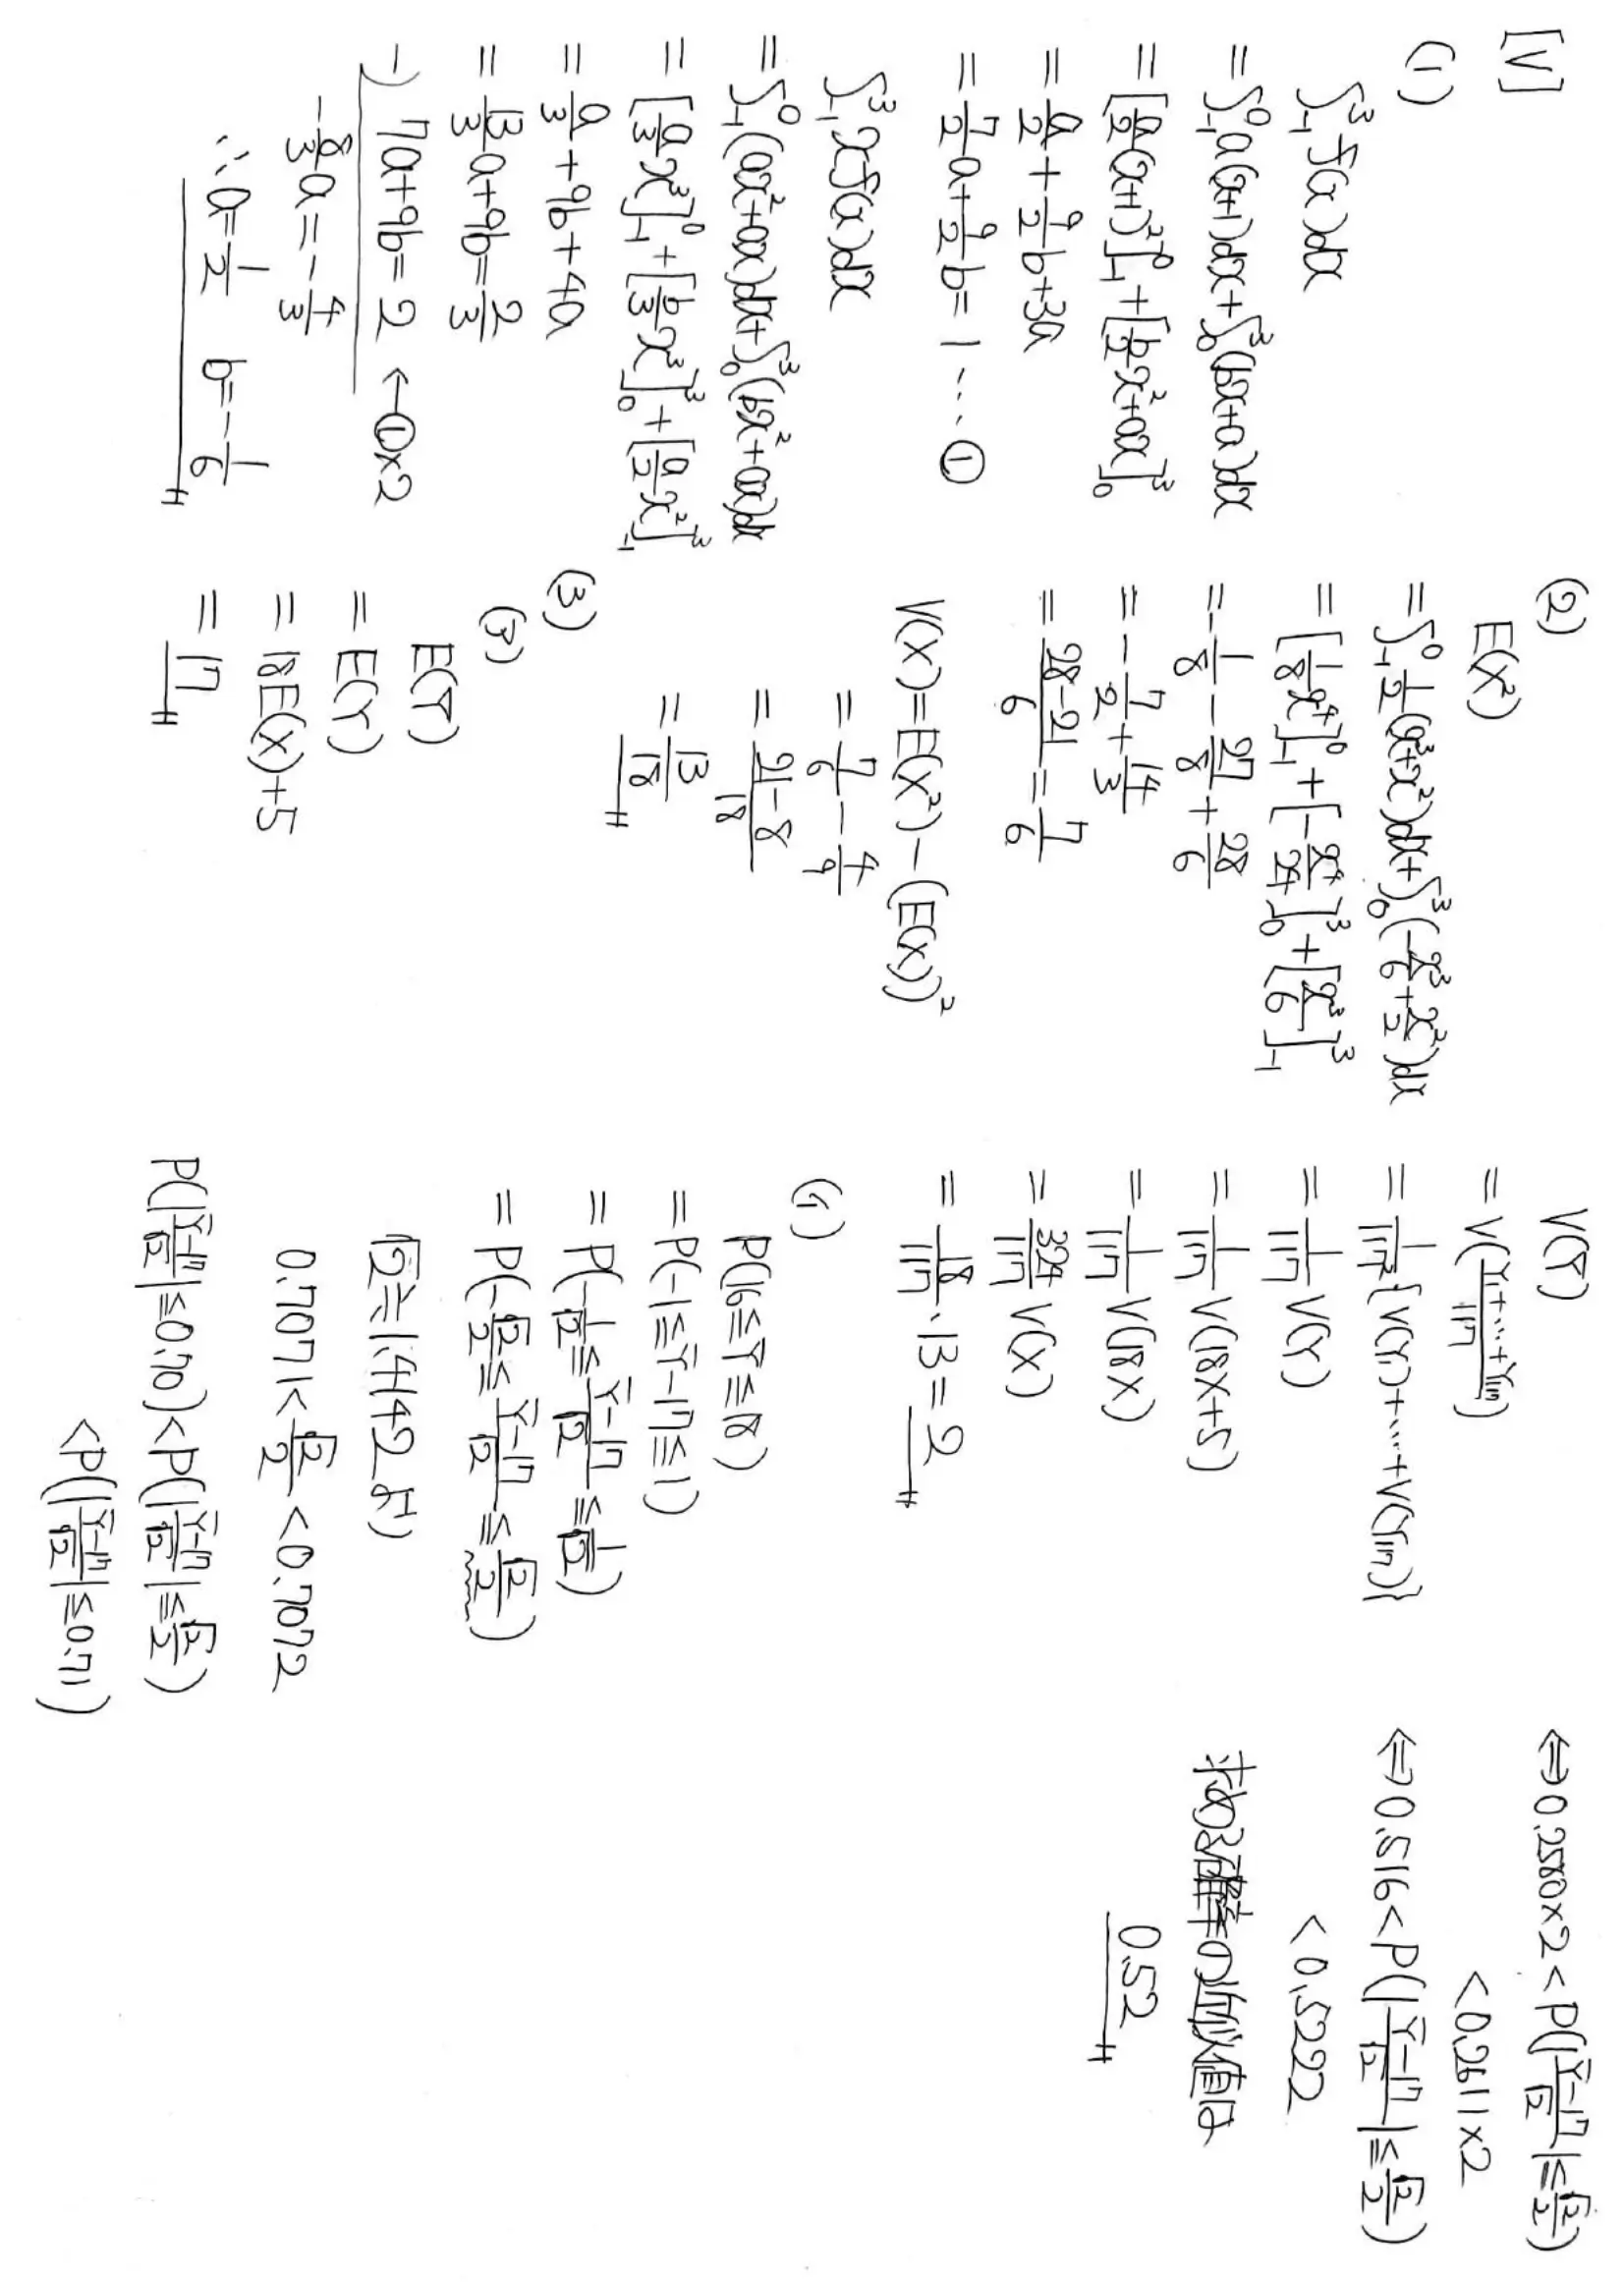 [V]
(1)
∫₋₁³ f(x)dx
= ∫₋₁⁰ a(x+1)dx + ∫₀³ (bx+a)dx
= [a/2 (x+1)²]₋₁⁰ + [b/2 x² + ax]₀³
= a/2 + 9/2 b + 3a
= 7/2 a + 9/2 b = 1 … ①
∫₋₁³ xf(x)dx
= ∫₋₁⁰ (ax²+ax)dx + ∫₀³ (bx²+ax)dx
= [a/3 x³]₋₁⁰ + [b/3 x³]₀³ + [a/2 x²]₋₁³
= a/3 + 9b + 4a
= 13/3 a + 9b = 2/3
−) 7a + 9b = 2 ← ①×2
−8/3 a = −4/3
∴ a = 1/2 b = −1/6
(2)
E(X²)
= ∫₋₁⁰ 1/2 (x³+x²)dx + ∫₀³ (−x³/6 + x²/2)dx
= [1/8 x⁴]₋₁⁰ + [−x⁴/24]₀³ + [x³/6]₋₁³
= −1/8 − 27/8 + 28/6
= −7/2 + 14/3
= (28−21)/6 = 7/6
V(X) = E(X²) − (E(X))²
= 7/6 − 4/9
= (21−8)/18
= 13/18
(3)
(ウ)
E(Ȳ)
= E(Y)
= 18E(X)+5
= 17
V(Ȳ)
= V((Y₁+…+Y₁₁₇)/117)
= 1/117² {V(Y₁)+…+V(Y₁₁₇)}
= 1/117 V(Y)
= 1/117 V(18X+5)
= 1/117 V(18X)
= 324/117 V(X)
= 18/117 · 13 = 2
(イ)
P(16≦Ȳ≦18)
= P(−1≦Ȳ−17≦1)
= P(−1/√2 ≦ (Ȳ−17)/√2 ≦ 1/√2)
= P(−√2/2 ≦ (Ȳ−17)/√2 ≦ √2/2)
√2≒1.4142 より
0.7071 < √2/2 < 0.7072
P(|(Ȳ−17)/√2| ≦ 0.70) < P(|(Ȳ−17)/√2| ≦ √2/2)
< P(|(Ȳ−17)/√2| ≦ 0.71)
⇔ 0.2580×2 < P(|(Ȳ−17)/√2| ≦ √2/2)
< 0.2611×2
⇔ 0.516 < P(|(Ȳ−17)/√2| ≦ √2/2)
< 0.5222
求める確率の近似値は
0.52